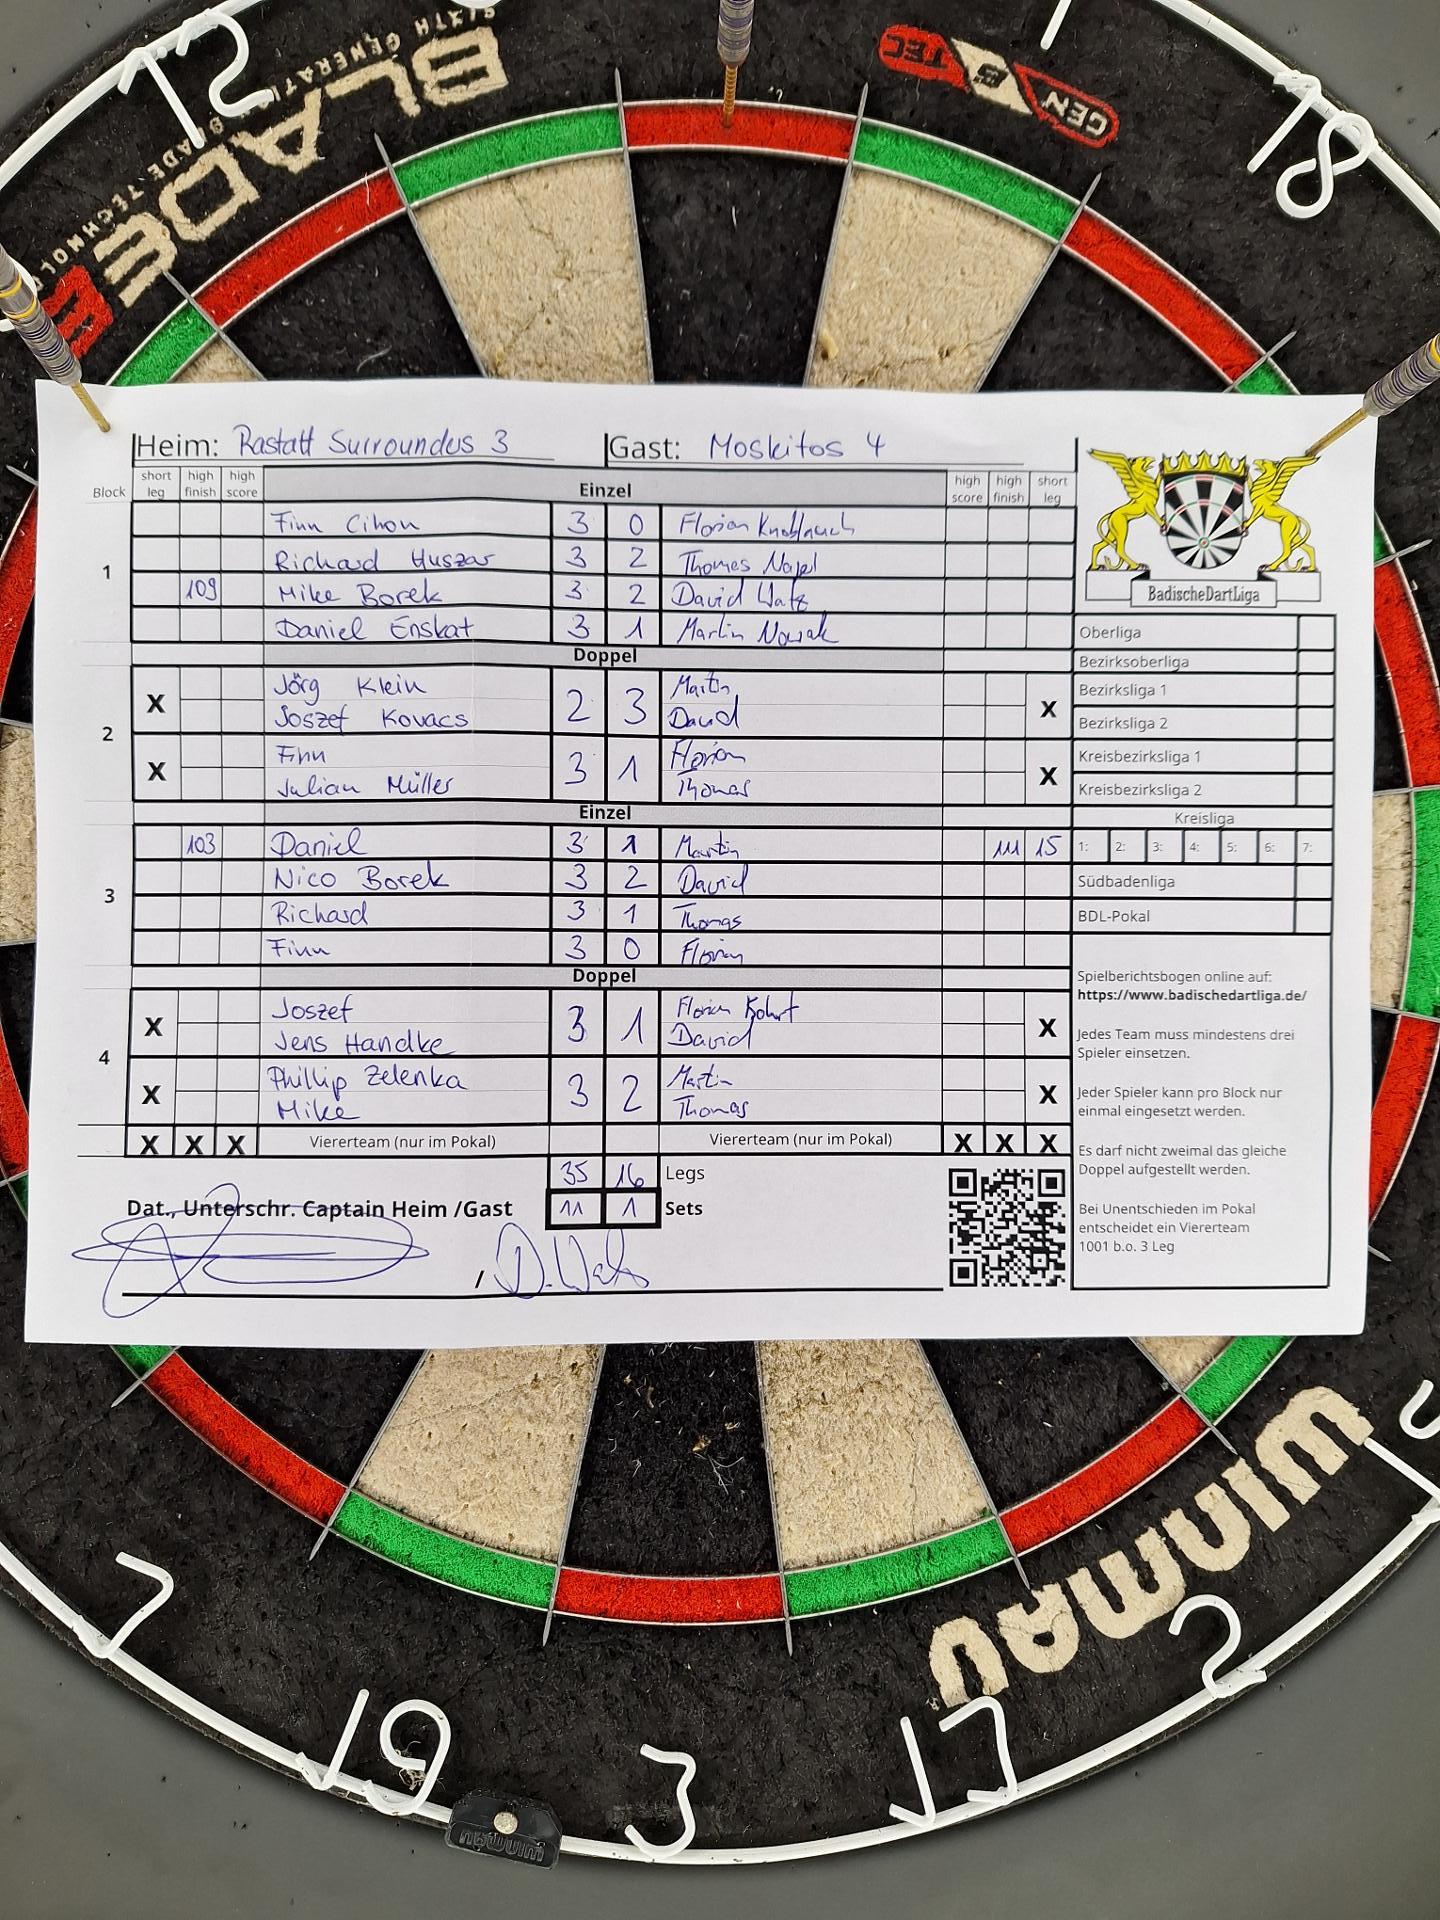 12
BLADE
SIXTH GENERATI
BLADE TECHNOL
GEN 6 TEC
1
18
Heim: Rastatt Surrounders 3 Gast: Moskitos 4
Block short leg high finish high score Einzel high score high finish short leg
1
Finn Cihon 3 0 Florian Knoblauch
Richard Huszar 3 2 Thomas Nagel
109 Mike Borek 3 2 David Walz
Daniel Enskat 3 1 Martin Nowak
Doppel
2
X Jörg Klein 2 3 Martin X
Joszef Kovacs David
X Finn 3 1 Florian X
Julian Müller Thomas
Einzel
3
103 Daniel 3 1 Martin 111 15
Nico Borek 3 2 David
Richard 3 1 Thomas
Finn 3 0 Florian
Doppel
4
X Joszef 3 1 Florian X
Jens Handke David
X Phillip Zelenka 3 2 Martin X
Mike Thomas
X X X Viererteam (nur im Pokal) Viererteam (nur im Pokal) X X X
35 16 Legs
11 1 Sets
Dat., Unterschr. Captain Heim /Gast
/ D. Walz
BadischeDartLiga
Oberliga
Bezirksoberliga
Bezirksliga 1
Bezirksliga 2
Kreisbezirksliga 1
Kreisbezirksliga 2
Kreisliga
1: 2: 3: 4: 5: 6: 7:
Südbadenliga
BDL-Pokal
Spielberichtsbogen online auf:
https://www.badischedartliga.de/
Jedes Team muss mindestens drei
Spieler einsetzen.
Jeder Spieler kann pro Block nur
einmal eingesetzt werden.
Es darf nicht zweimal das gleiche
Doppel aufgestellt werden.
Bei Unentschieden im Pokal
entscheidet ein Viererteam
1001 b.o. 3 Leg
WINMAU
7
19
3
17
2
WINMAU